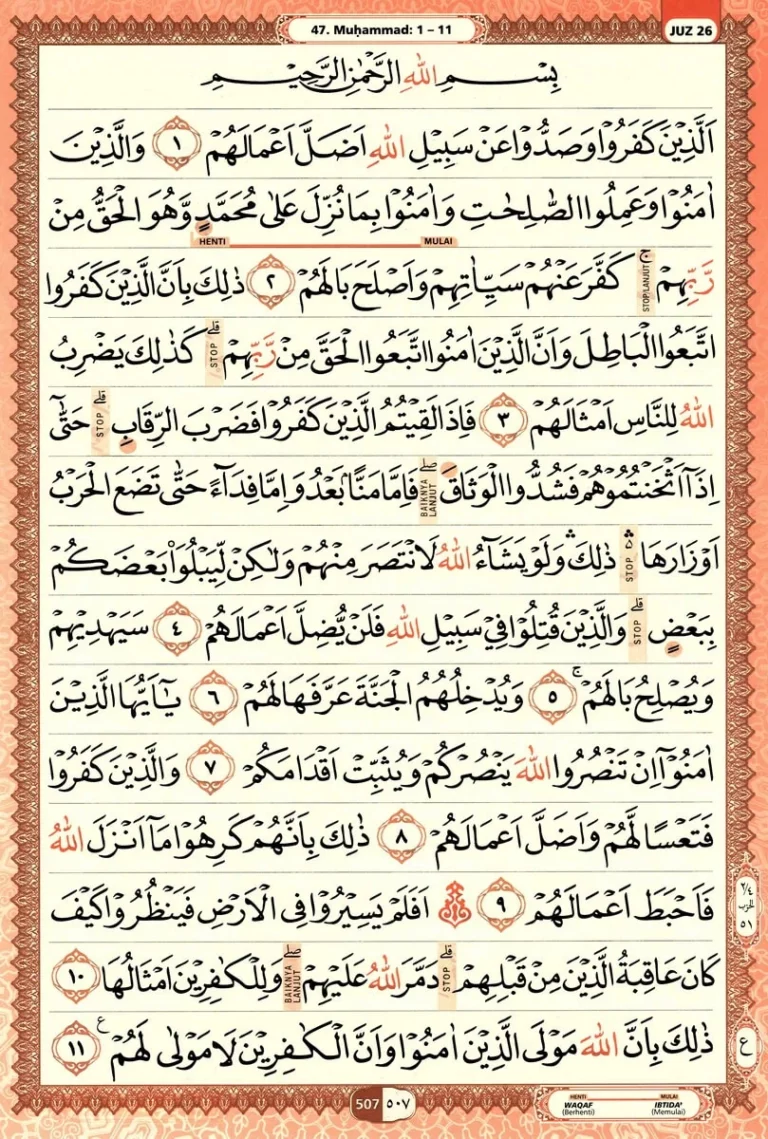 47. Muḥammad: 1 – 11
JUZ 26
بِسْمِ اللّٰهِ الرَّحْمٰنِ الرَّحِيْمِ
اَلَّذِيْنَ كَفَرُوْا وَصَدُّوْا عَنْ سَبِيْلِ اللّٰهِ اَضَلَّ اَعْمَالَهُمْ ١ وَالَّذِيْنَ
اٰمَنُوْا وَعَمِلُوا الصّٰلِحٰتِ وَاٰمَنُوْا بِمَا نُزِّلَ عَلٰى مُحَمَّدٍ وَّهُوَ الْحَقُّ مِنْ
HENTI MULAI
رَّبِّهِمْ ۚ كَفَّرَ عَنْهُمْ سَيِّاٰتِهِمْ وَاَصْلَحَ بَالَهُمْ ٢ ذٰلِكَ بِاَنَّ الَّذِيْنَ كَفَرُوا
STOP/LANJUT
اتَّبَعُوا الْبَاطِلَ وَاَنَّ الَّذِيْنَ اٰمَنُوا اتَّبَعُوا الْحَقَّ مِنْ رَّبِّهِمْ ۗ كَذٰلِكَ يَضْرِبُ
STOP
اللّٰهُ لِلنَّاسِ اَمْثَالَهُمْ ٣ فَاِذَا لَقِيْتُمُ الَّذِيْنَ كَفَرُوْا فَضَرْبَ الرِّقَابِ ۗ حَتّٰٓى
STOP
اِذَآ اَثْخَنْتُمُوْهُمْ فَشُدُّوا الْوَثَاقَ ۖ فَاِمَّا مَنًّاۢ بَعْدُ وَاِمَّا فِدَاۤءً حَتّٰى تَضَعَ الْحَرْبُ
BAIKNYA LANJUT
اَوْزَارَهَا ۛ ذٰلِكَ ۛ وَلَوْ يَشَاۤءُ اللّٰهُ لَانْتَصَرَ مِنْهُمْ وَلٰكِنْ لِّيَبْلُوَا۟ بَعْضَكُمْ
STOP
بِبَعْضٍ ۗ وَالَّذِيْنَ قُتِلُوْا فِيْ سَبِيْلِ اللّٰهِ فَلَنْ يُّضِلَّ اَعْمَالَهُمْ ٤ سَيَهْدِيْهِمْ
STOP
وَيُصْلِحُ بَالَهُمْ ۚ ٥ وَيُدْخِلُهُمُ الْجَنَّةَ عَرَّفَهَا لَهُمْ ٦ يٰٓاَيُّهَا الَّذِيْنَ
اٰمَنُوْٓا اِنْ تَنْصُرُوا اللّٰهَ يَنْصُرْكُمْ وَيُثَبِّتْ اَقْدَامَكُمْ ٧ وَالَّذِيْنَ كَفَرُوْا
فَتَعْسًا لَّهُمْ وَاَضَلَّ اَعْمَالَهُمْ ٨ ذٰلِكَ بِاَنَّهُمْ كَرِهُوْا مَآ اَنْزَلَ اللّٰهُ
فَاَحْبَطَ اَعْمَالَهُمْ ٩ اَفَلَمْ يَسِيْرُوْا فِى الْاَرْضِ فَيَنْظُرُوْا كَيْفَ
٢/٤ الحزب ٥١
كَانَ عَاقِبَةُ الَّذِيْنَ مِنْ قَبْلِهِمْ ۗ دَمَّرَ اللّٰهُ عَلَيْهِمْ ۖ وَلِلْكٰفِرِيْنَ اَمْثَالُهَا ١٠
STOP
BAIKNYA LANJUT
ذٰلِكَ بِاَنَّ اللّٰهَ مَوْلَى الَّذِيْنَ اٰمَنُوْا وَاَنَّ الْكٰفِرِيْنَ لَا مَوْلٰى لَهُمْ ࣖ ١١
ع
507 ٥٠٧
HENTI MULAI
WAQAF IBTIDA'
(Berhenti) (Memulai)